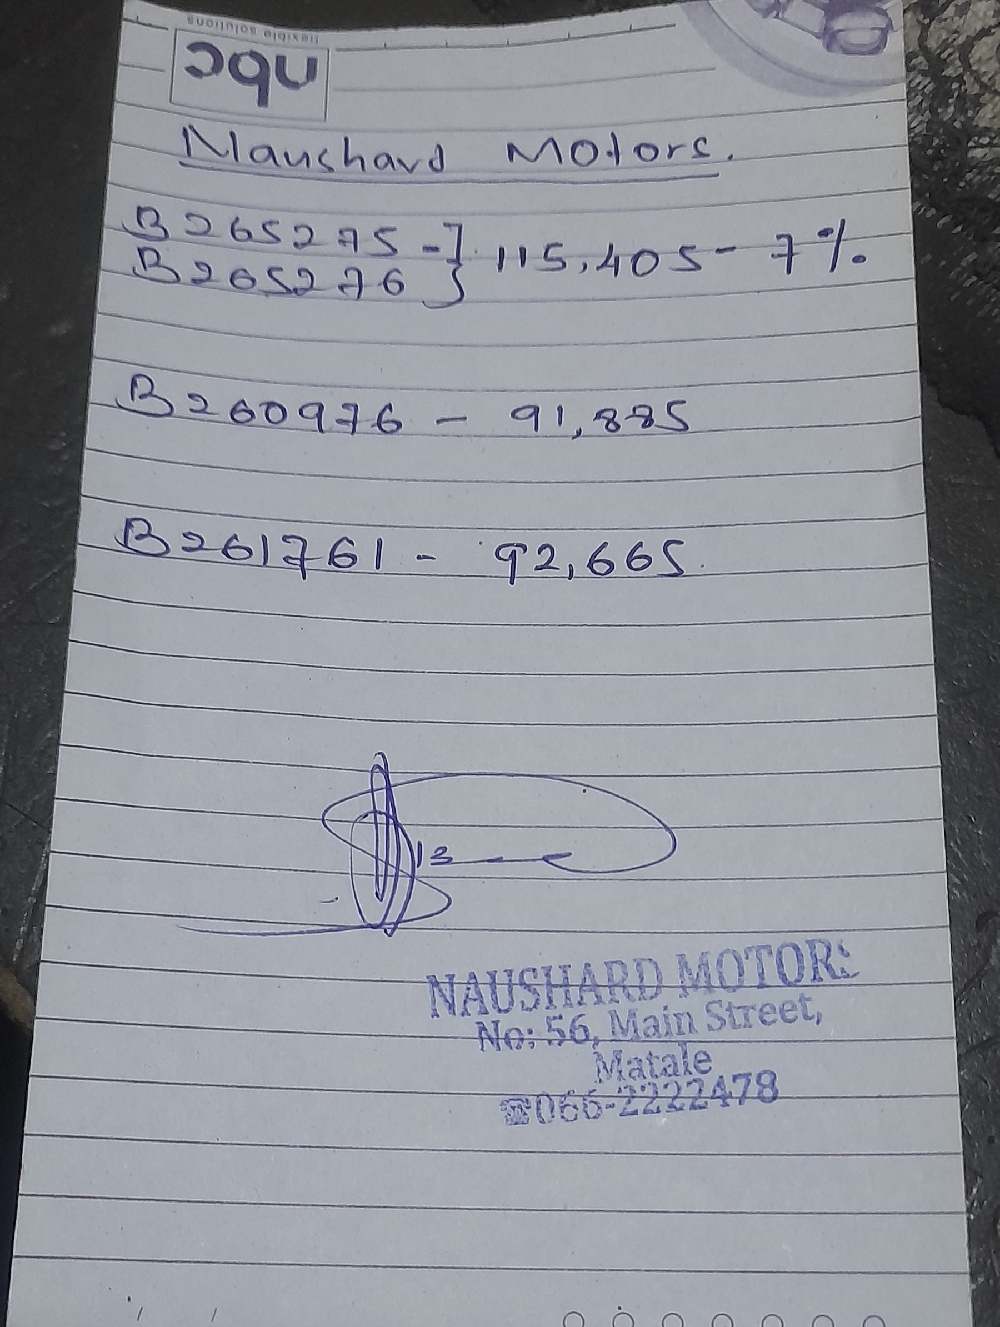 flexible solutions
nbc
Naushard Motors.
B265275 -
B265276 } 115,405 - 7%
B260976 - 91,885
B261761 - 92,665
NAUSHARD MOTORS
No: 56, Main Street,
Matale
☎066-2222478